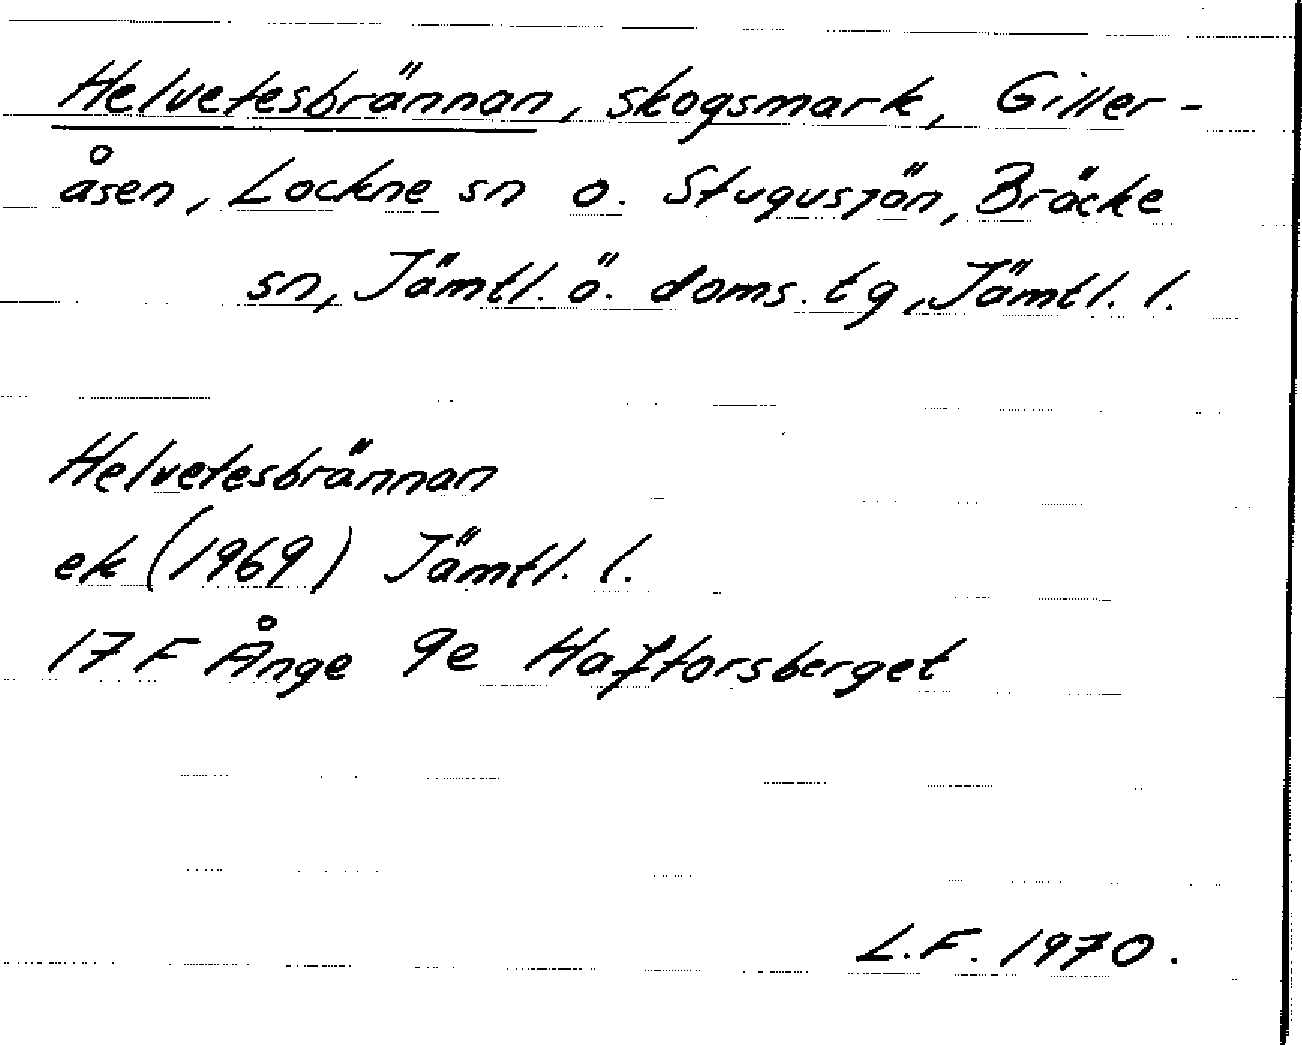 Helvetesbrännan, skogsmark, Giller-
åsen, Lockne sn o. Stugusjön, Bräcke
sn, Jämtl. ö. doms. tg, Jämtl. l.
Helvetesbrännan
ek (1969) Jämtl. l.
17 F Ånge 9e Haftorsberget
L.F. 1970.